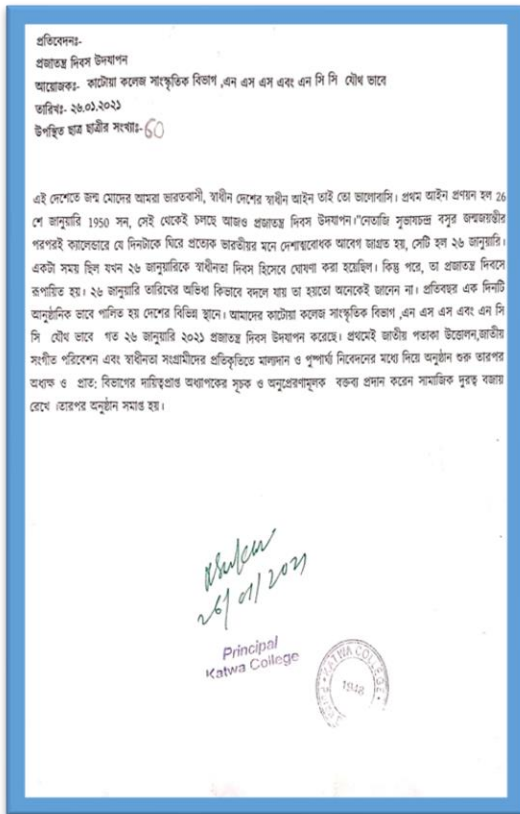 প্রতিবেদনঃ-
প্রজাতন্ত্র দিবস উদযাপন
আয়োজকঃ- কাটোয়া কলেজ সাংস্কৃতিক বিভাগ ,এন এস এস এবং এন সি সি যৌথ ভাবে
তারিখঃ- ২৬.০১.২০২১
উপস্থিত ছাত্র ছাত্রীর সংখ্যাঃ- 60
এই দেশেতে জন্ম মোদের আমরা ভারতবাসী, স্বাধীন দেশের স্বাধীন আইন তাই তো ভালোবাসি। প্রথম আইন প্রণয়ন হল 26
শে জানুয়ারি 1950 সন, সেই থেকেই চলছে আজও প্রজাতন্ত্র দিবস উদযাপন।"নেতাজি সুভাষচন্দ্র বসুর জন্মজয়ন্তীর
পরপরই ক্যালেন্ডারে যে দিনটাকে ঘিরে প্রত্যেক ভারতীয়র মনে দেশাত্মবোধক আবেগ জাগ্রত হয়, সেটি হল ২৬ জানুয়ারি।
একটা সময় ছিল যখন ২৬ জানুয়ারিকে স্বাধীনতা দিবস হিসেবে ঘোষণা করা হয়েছিল। কিন্তু পরে, তা প্রজাতন্ত্র দিবসে
রূপায়িত হয়। ২৬ জানুয়ারি তারিখের অভিধা কিভাবে বদলে যায় তা হয়তো অনেকেই জানেন না। প্রতিবছর এক দিনটি
আনুষ্ঠানিক ভাবে পালিত হয় দেশের বিভিন্ন স্থানে। আমাদের কাটোয়া কলেজ সাংস্কৃতিক বিভাগ ,এন এস এস এবং এন সি
সি যৌথ ভাবে গত ২৬ জানুয়ারি ২০২১ প্রজাতন্ত্র দিবস উদযাপন করেছে। প্রথমেই জাতীয় পতাকা উত্তোলন,জাতীয়
সংগীত পরিবেশন এবং স্বাধীনতা সংগ্রামীদের প্রতিকৃতিতে মাল্যদান ও পুষ্পার্ঘ্য নিবেদনের মধ্যে দিয়ে অনুষ্ঠান শুরু তারপর
অধ্যক্ষ ও প্রাত: বিভাগের দায়িত্বপ্রাপ্ত অধ্যাপকের সূচক ও অনুপ্রেরণামূলক বক্তব্য প্রদান করেন সামাজিক দুরত্ব বজায়
রেখে ।তারপর অনুষ্ঠান সমাপ্ত হয়।
26/01/2021
Principal
Katwa College
KATWA COLLEGE
1948